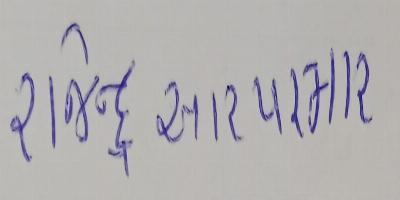 રાજેન્દ્ર આર પરમાર